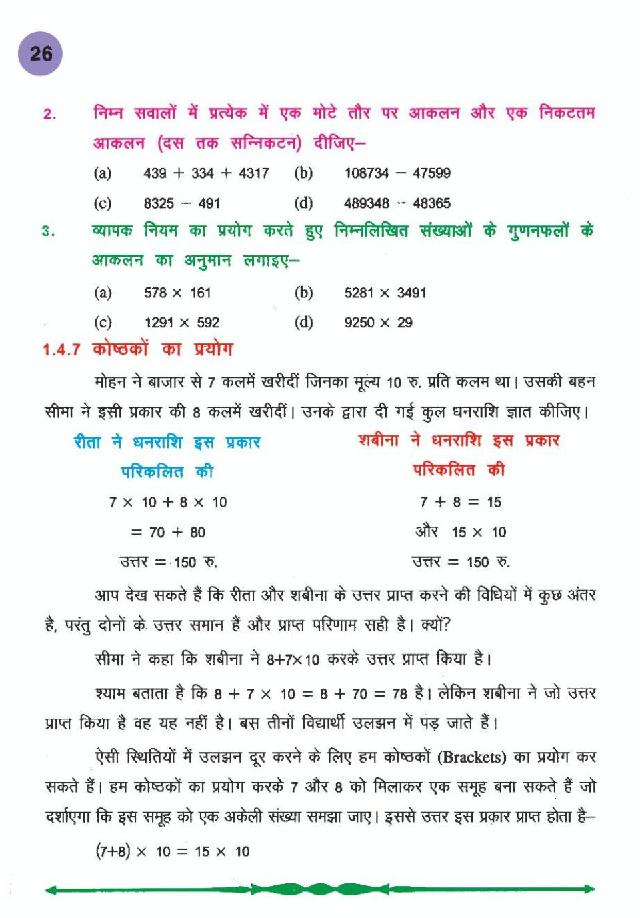 26
2. निम्न सवालों में प्रत्येक में एक मोटे तौर पर आकलन और एक निकटतम
आकलन (दस तक सन्निकटन) दीजिए–
(a) 439 + 334 + 4317 (b) 108734 – 47599
(c) 8325 – 491 (d) 489348 – 48365
3. व्यापक नियम का प्रयोग करते हुए निम्नलिखित संख्याओं के गुणनफलों के
आकलन का अनुमान लगाइए–
(a) 578 × 161 (b) 5281 × 3491
(c) 1291 × 592 (d) 9250 × 29
1.4.7 कोष्ठकों का प्रयोग
मोहन ने बाजार से 7 कलमें खरीदीं जिनका मूल्य 10 रु. प्रति कलम था। उसकी बहन
सीमा ने इसी प्रकार की 8 कलमें खरीदीं। उनके द्वारा दी गई कुल धनराशि ज्ञात कीजिए।
रीता ने धनराशि इस प्रकार
परिकलित की
7 × 10 + 8 × 10
= 70 + 80
उत्तर = 150 रु.
शबीना ने धनराशि इस प्रकार
परिकलित की
7 + 8 = 15
और 15 × 10
उत्तर = 150 रु.
आप देख सकते हैं कि रीता और शबीना के उत्तर प्राप्त करने की विधियों में कुछ अंतर
है, परंतु दोनों के उत्तर समान हैं और प्राप्त परिणाम सही है। क्यों?
सीमा ने कहा कि शबीना ने 8+7×10 करके उत्तर प्राप्त किया है।
श्याम बताता है कि 8 + 7 × 10 = 8 + 70 = 78 है। लेकिन शबीना ने जो उत्तर
प्राप्त किया है वह यह नहीं है। बस तीनों विद्यार्थी उलझन में पड़ जाते हैं।
ऐसी स्थितियों में उलझन दूर करने के लिए हम कोष्ठकों (Brackets) का प्रयोग कर
सकते हैं। हम कोष्ठकों का प्रयोग करके 7 और 8 को मिलाकर एक समूह बना सकते हैं जो
दर्शाएगा कि इस समूह को एक अकेली संख्या समझा जाए। इससे उत्तर इस प्रकार प्राप्त होता है–
(7+8) × 10 = 15 × 10